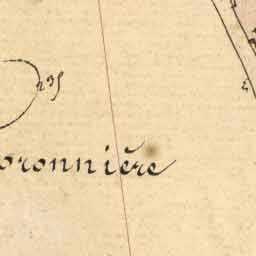 235
oronnière